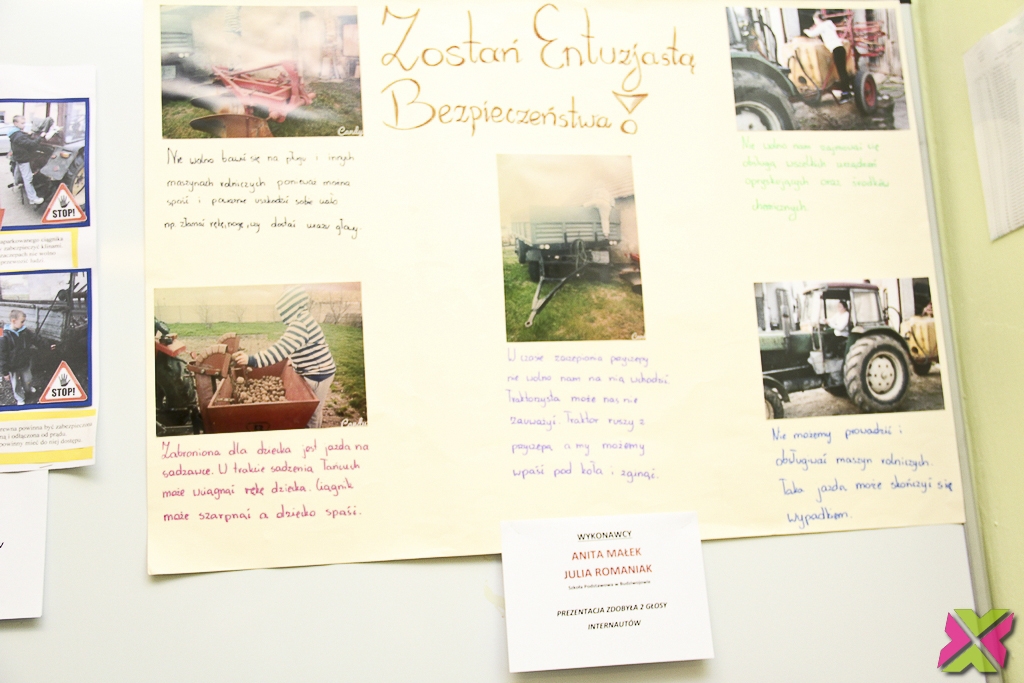 Zostań Entuzjastą
Bezpieczeństwa!
Nie wolno bawić się na pługu i innych
maszynach rolniczych ponieważ można
spaść i poważnie uszkodzić sobie ciało
np. złamać rękę, nogę, czy dostać urazu głowy.
Nie wolno nam zajmować się
obsługą wszelkich urządzeń
opryskujących oraz środków
chwastowych
Zabroniona dla dziecka jest jazda na
sadzarce. W trakcie sadzenia łańcuch
może wciągnąć rękę dziecka. Ciągnik
może szarpnąć a dziecko spaść.
W czasie zaczepiania przyczepy
nie wolno nam na nią wchodzić.
Traktorzysta może nas nie
zauważyć. Traktor ruszy z
przyczepą a my możemy
wpaść pod koła i zginąć.
Nie możemy prowadzić i
obsługiwać maszyn rolniczych.
Taka jazda może skończyć się
wypadkiem.
STOP!
zaparkowanego ciągnika
zabezpieczyć klinami.
STOP!
powinna być zabezpieczona
i odłączona od prądu.
powinny mieć do niej dostępu.
WYKONAWCY
ANITA MAŁEK
JULIA ROMANIAK
PREZENTACJA ZDOBYŁA 2 GŁOSY
INTERNAUTÓW